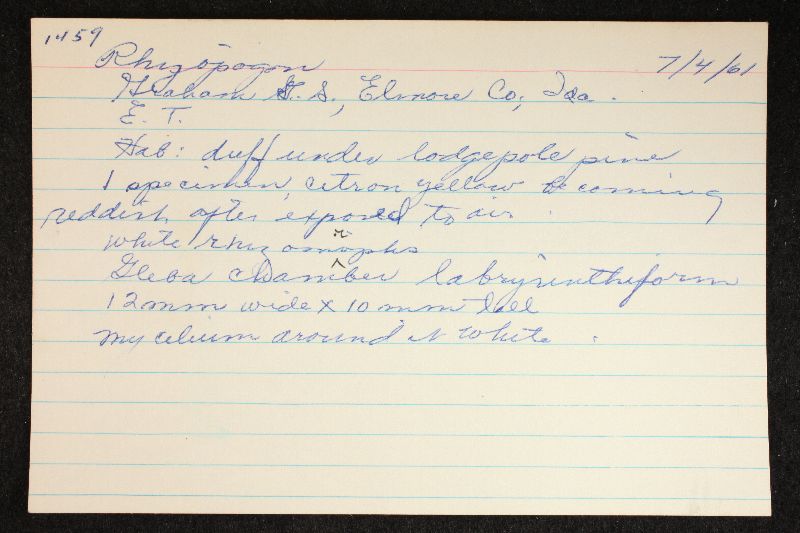 1459
Rhizopogon 7/4/61
Graham G. S., Elmore Co; Ida.
E. T.
Hab: duff under lodgepole pine
1 specimen, citron yellow becoming
reddish after exposed to air.
white rhizomorphs
Gleba chamber labryrinthiform
12mm wide x 10 mm tall
mycelium around it white.